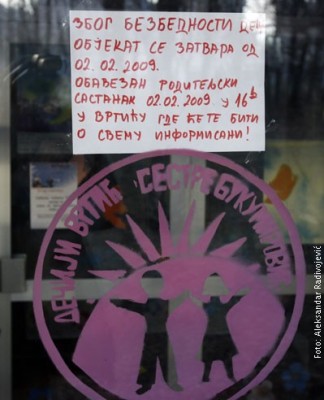 ЗБОГ БЕЗБЕДНОСТИ
ОБЈЕКАТ СЕ ЗАТВАРА ОД
02. 02. 2009.
ОБАВЕЗАН РОДИТЕЉСКИ
САСТАНАК 02.02.2009 У 16h
У ВРТИЋУ ГДЕ ЋЕТЕ БИТИ
О СВЕМУ ИНФОРМИСАНИ!
ДЕЧИЈИ ВРТИЋ СЕСТРЕ БУКУМИРОВИЋ
Foto: Aleksandar Radivojević